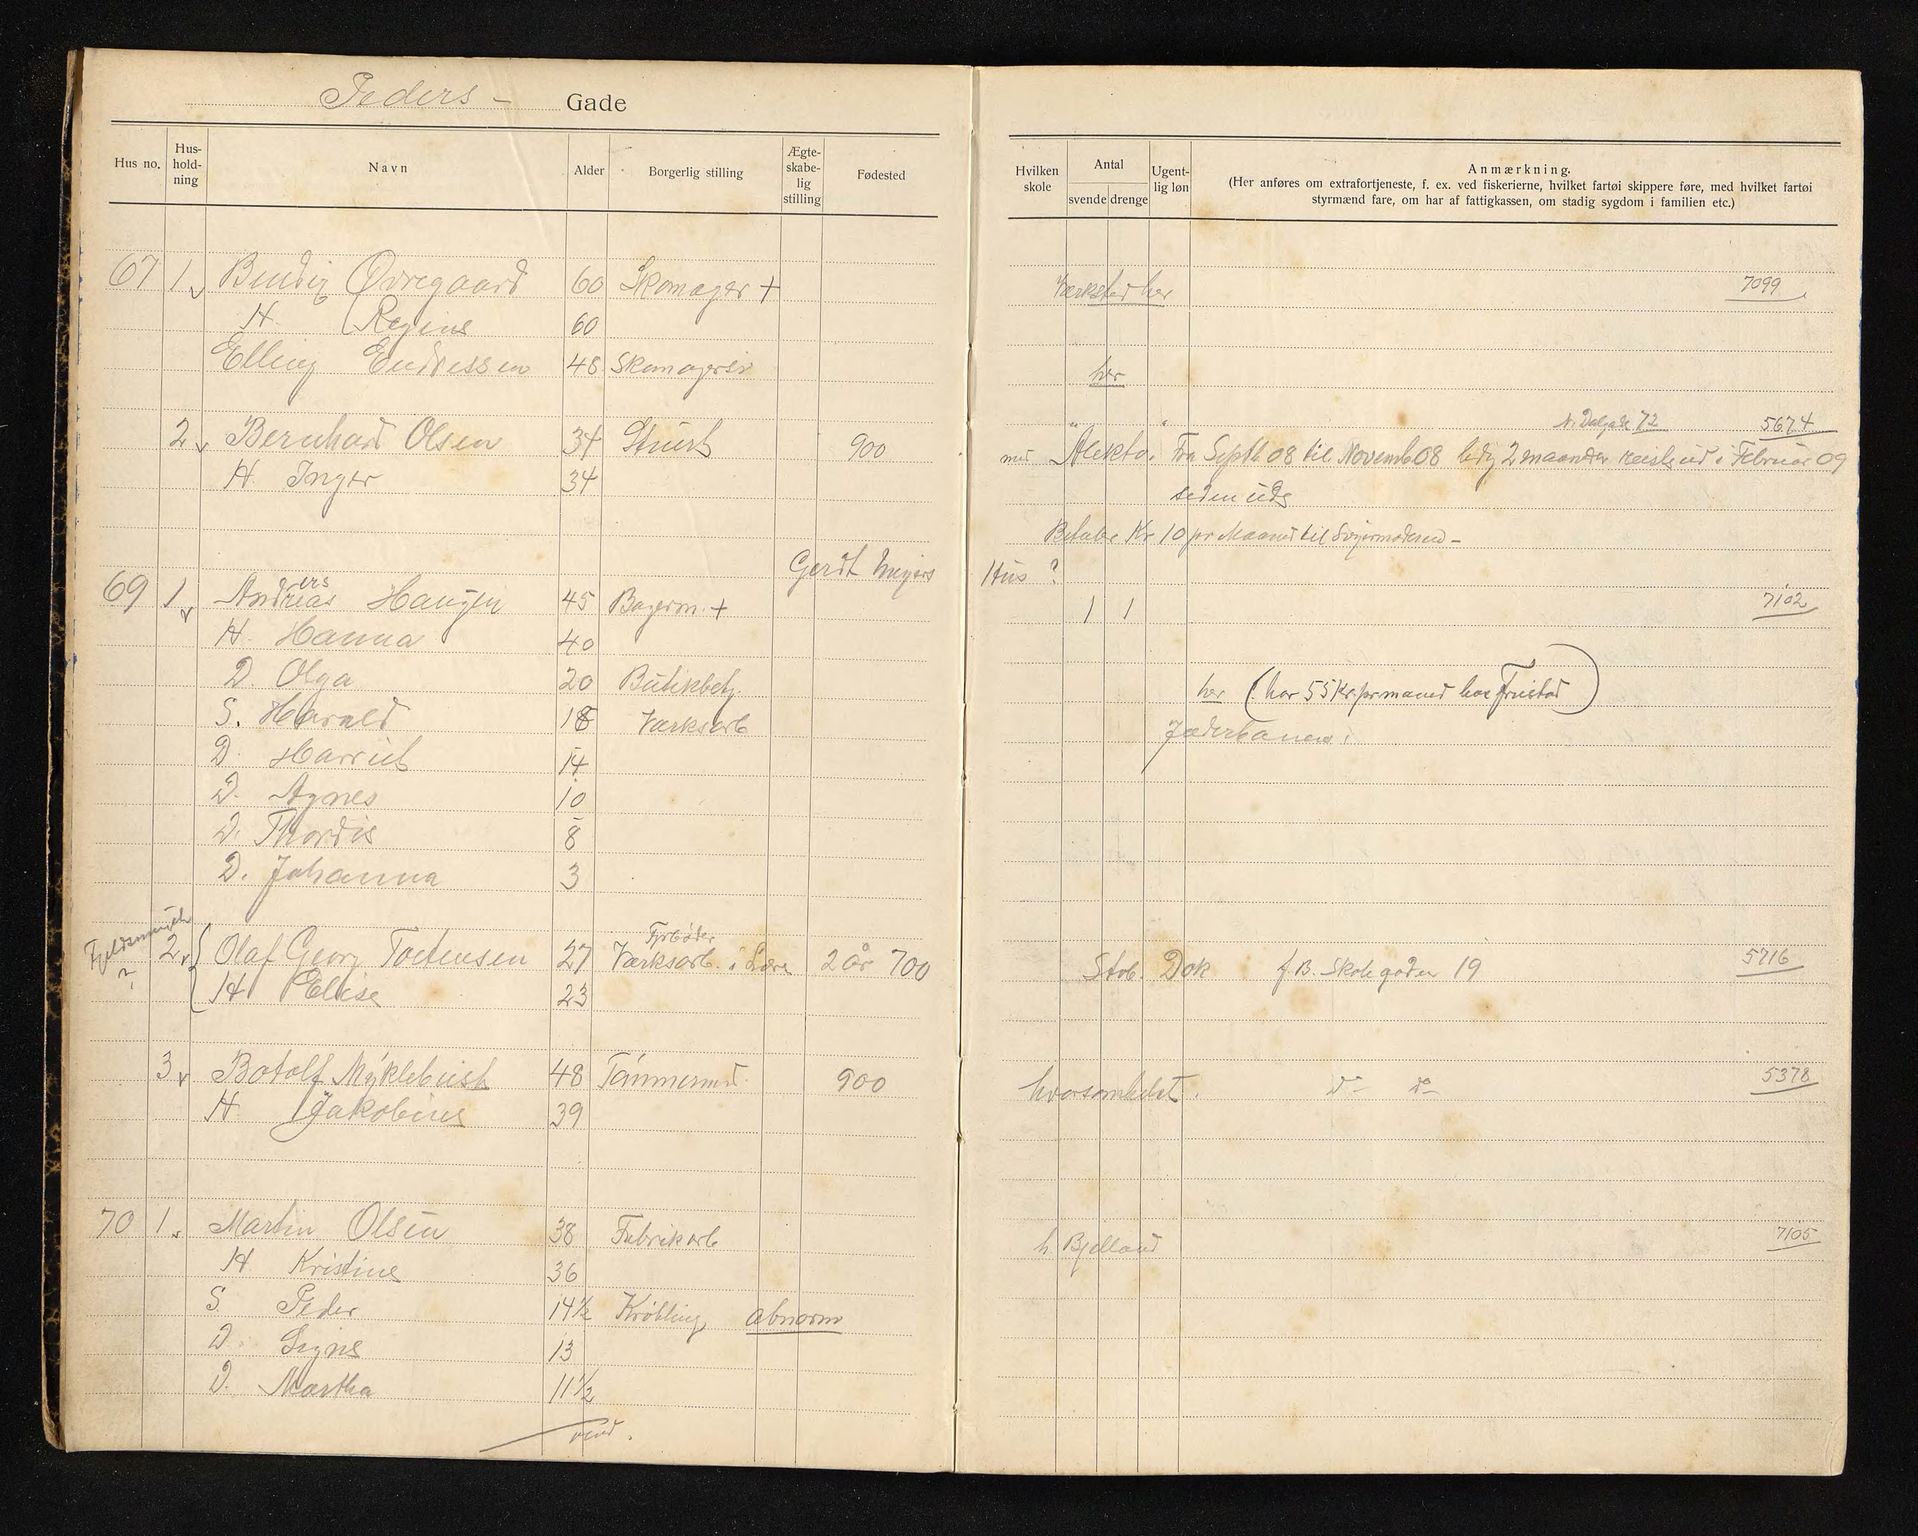 Peders - Gade
Hus no. Hus-hold-ning Navn Alder Borgerlig stilling Ægte-skabe-lig stilling Fødested
Hvilken skole Antal svende drenge Ugent-lig løn Anmærkning.
(Her anføres om extrafortjeneste, f. ex. ved fiskerierne, hvilket fartøi skippere føre, med hvilket fartøi
styrmænd fare, om har af fattigkassen, om stadig sygdom i familien etc.)
67 1 Bendix Øvregaard 60 Skomager + Værksted her 7099
H. Regine 60
Elling Endressen 48 Skomagersv her
Dalgade 72 5674
2 Bernhard Olsen 34 Stuert 900 med Alekto. Fra Septb 08 til Novemb 08 ledig 2 maaneder reiste ud i Februar 09
H. Inger 34 siden ude
Betaler Kr 10 pr Maaned til Svigermoderen -
Gerdt Meyers Hus ?
69 1 Andreas ers Haugen 45 Bagerm. + 1 1 7102
H. Hanna 40
D. Olga 20 Butikbetj. her (har 55 kr. pr maaned hos Trustad)
S. Harald 18 Værksarb Jæderbanen.
D. Harriet 14
D. Agnes 10
D. Thordis 8
D. Johanna 3
Fyrbøder
2 Olaf Georg Torkensen 27 Værksarb. i Lære 2 år 700 Stvb. Dok f. B. Skolegaden 19 5716
H Elise 23
3 Botolf Myklebust 48 Tømmermd. 900 hvorsomhelst. d- d- 5378
H. Jakobine 39
70 1 Martin Olsen 38 Fabrikarb h. Bjelland 7105
H. Kristine 36
S. Peder 14½ Krøbling abnorm
D. Signe 13
D. Martha 11½
vend.